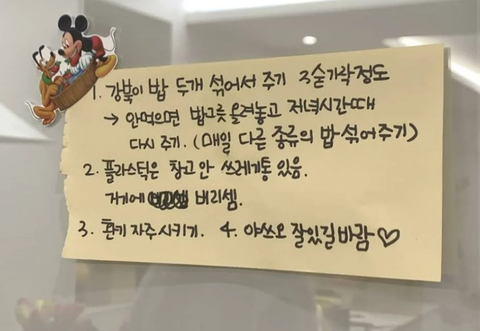 1. 강북이 밥 두개 섞어서 주기 3숟가락정도
→ 안먹으면 밥그릇 올려놓고 저녁시간때
다시 주기. (매일 다른 종류의 밥 섞어주기)
2. 플라스틱은 창고 안 쓰레기통 있음.
거기에 버리셈.
3. 환기 자주 시키기. 4. 야쓰오 잘있길바람♡